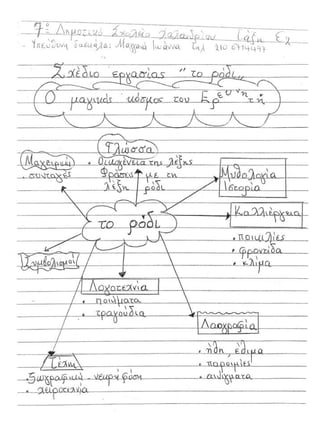 7ο Δημοτικό Σχολείο Χαλανδρίου Τάξη Ε2
- Υπεύθυνη δασκάλα: Μαγκά Ιωάννα τηλ 210 6714497
Σχέδιο εργασίας "το ρόδι"
Ο μαγικός κόσμος του Ερευνητή
Γλώσσα
• οικογένεια της λέξης
Φράσεις με τη
λέξη ρόδι
Μαγειρική
• συνταγές
Μυθολογία
Ιστορία
το ρόδι
Καλλιέργεια
• ποικιλίες
• φροντίδα
• κλίμα
Συμβολισμοί
Λογοτεχνία
• ποιήματα
• τραγούδια
Λαογραφία
• ήθη, έθιμα
• παροιμίες
• αινίγματα
Τέχνη
• ζωγραφική - νεκρή φύση
• χειροτεχνία